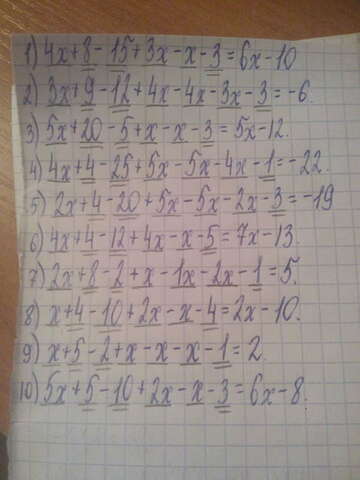 1) 4x+8-15+3x-x-3=6x-10
2) 3x+9-12+4x-4x-3x-3=-6.
3) 5x+20-5+x-x-3=5x-12.
4) 4x+4-25+5x-5x-4x-1=-22.
5) 2x+4-20+5x-5x-2x-3=-19
6) 4x+4-12+4x-x-5=7x-13.
7) 2x+8-2+x-1x-2x-1=5.
8) x+4-10+2x-x-4=2x-10.
9) x+5-2+x-x-x-1=2.
10) 5x+5-10+2x-x-3=6x-8.